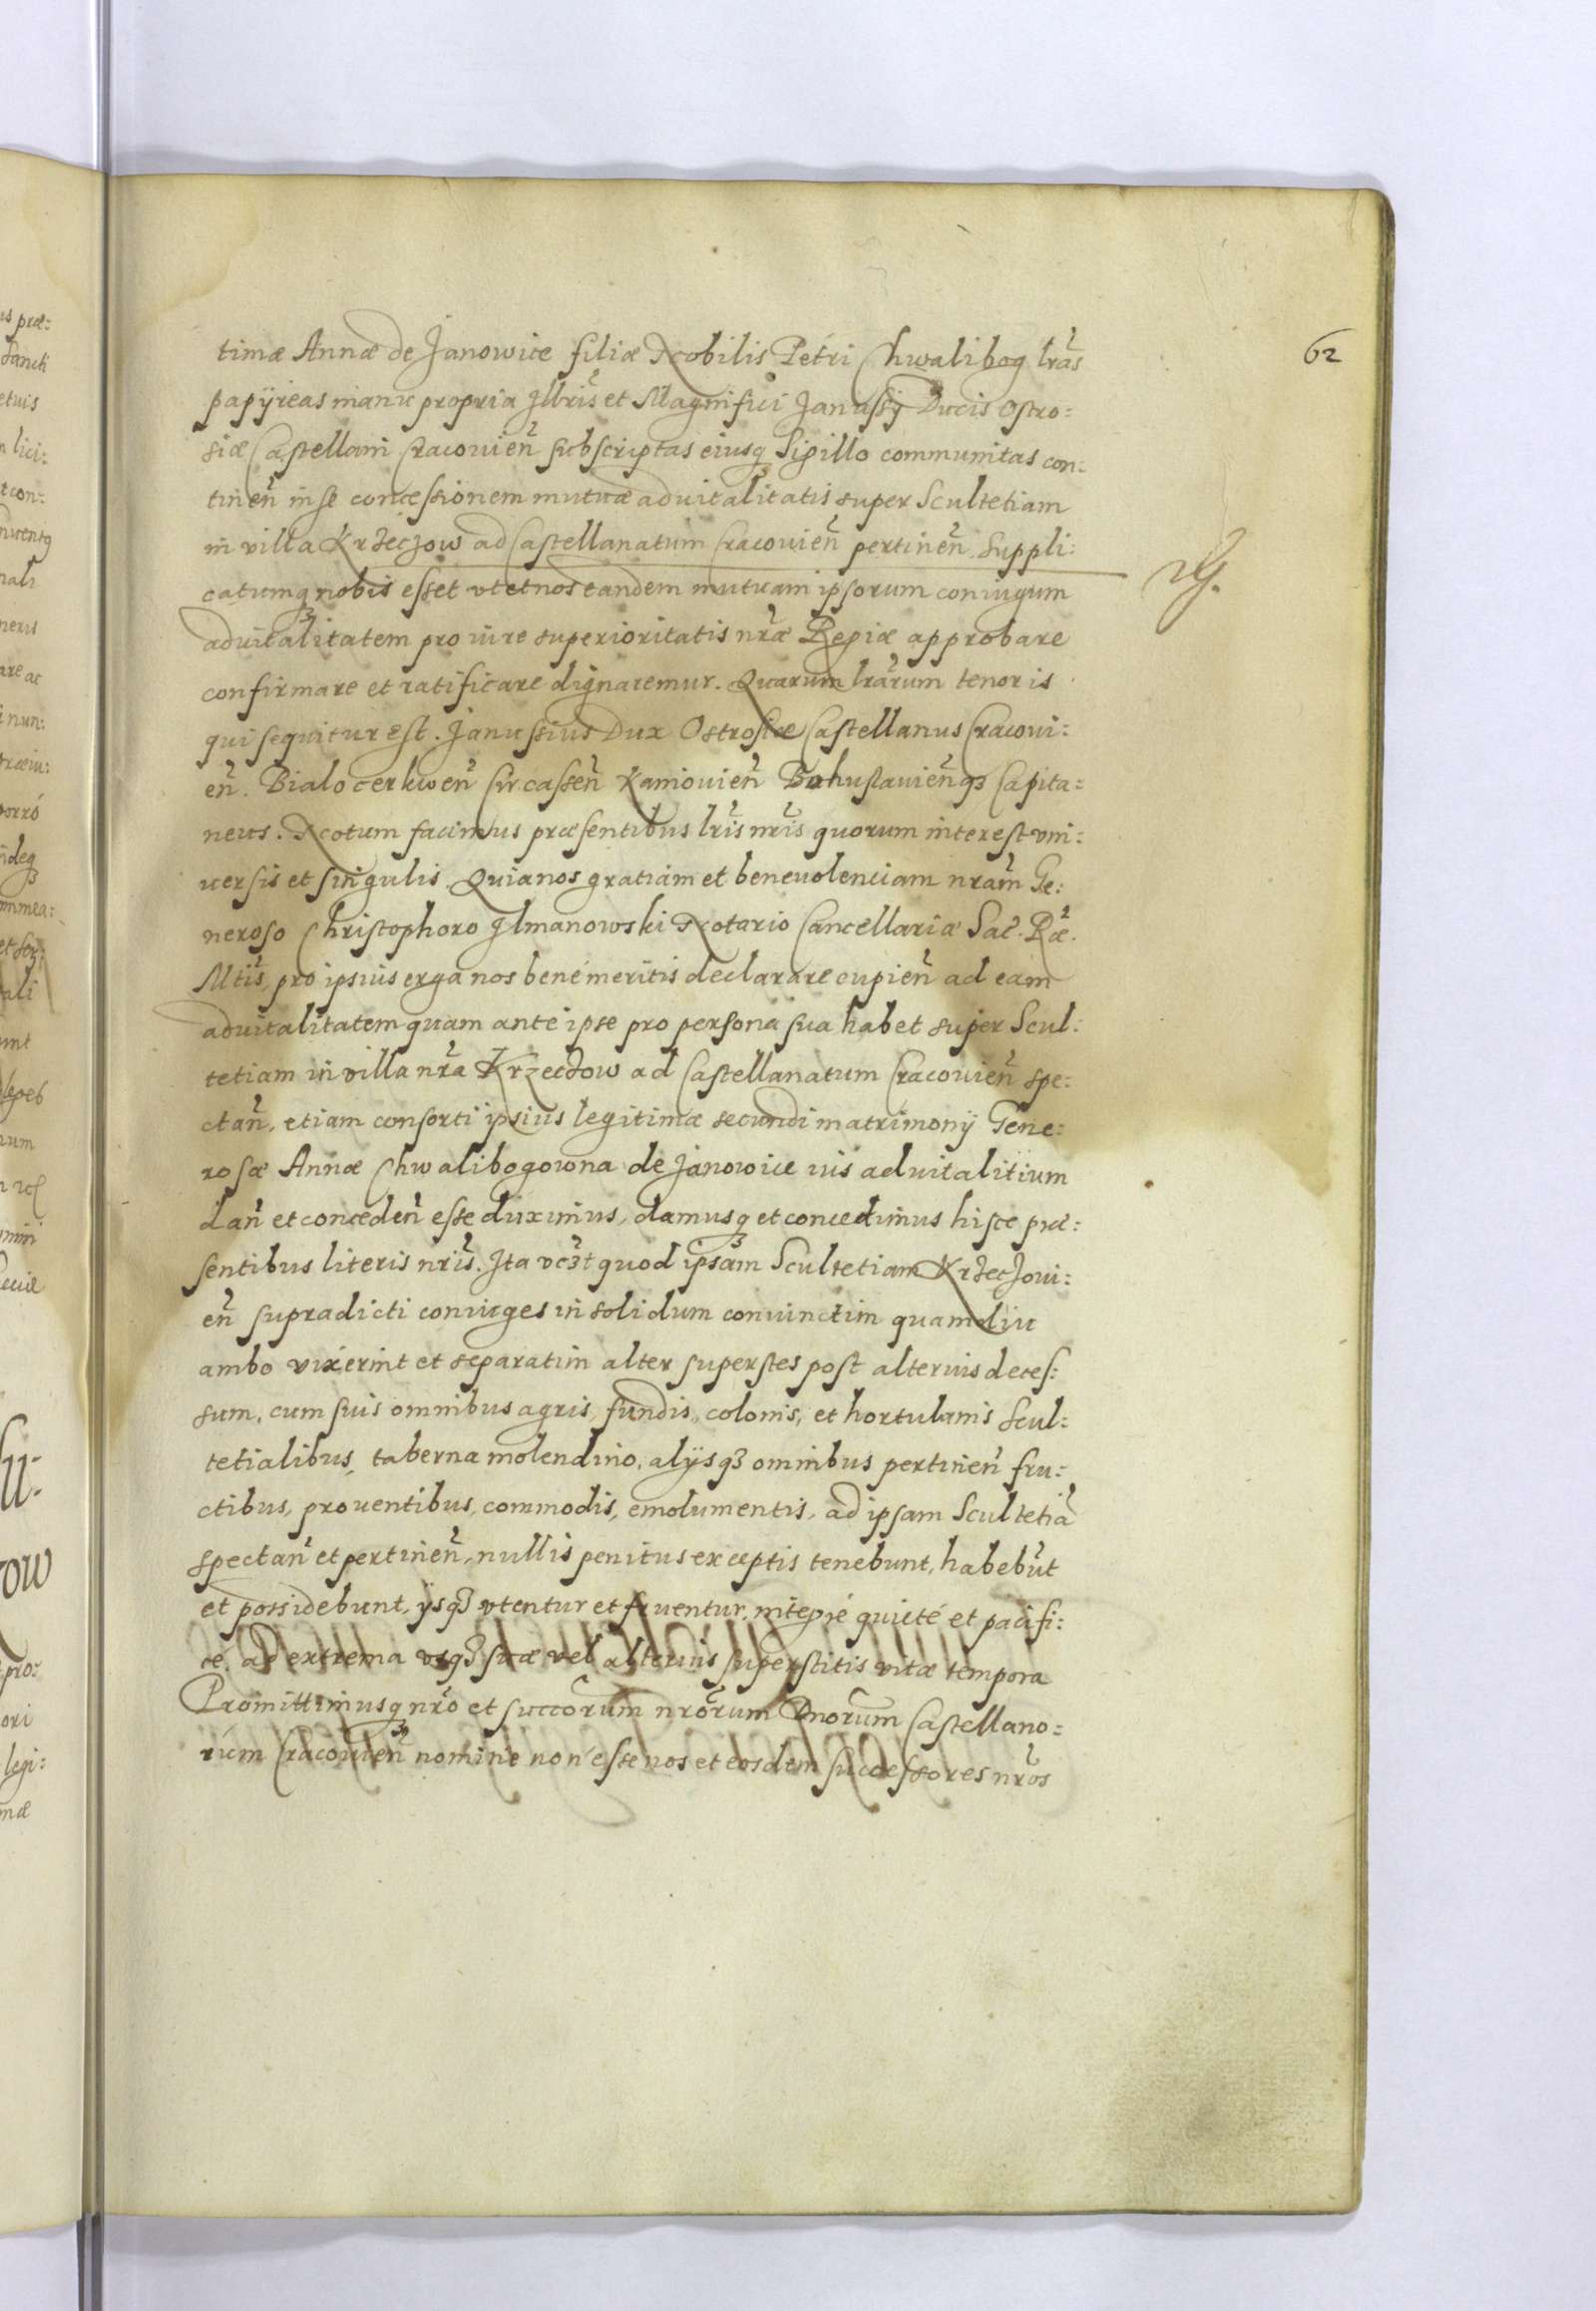 62
timæ Annæ de Janowice filiæ Nobilis Petri Chwalibog lr̃as
papÿreas manu propria Jllr̃is et Magnifici Janussÿ Ducis Ostro:
giæ Castellani Cracouien̄ subscriptas eiusq̃ Sigillo communitas con:
tinen̄ in se concessionem mutuæ aduitalitatis super Scultetiam
in villa Krzeczow ad Castellanatum Cracouien̄ pertinen̄ Suppli:
catumq̃ nobis esset vt et nos eandem mutuam ipsorum coniugum
aduitalitatem pro iure superioritatis nr̃æ Regiæ approbare
confirmare et ratificare dignaremur. Quarum lr̃arum tenor is
qui sequitur est. Janussius Dux Ostrogiæ Castellanus Cracoui:
en̄. Bialocerkwen̄ Circassen̄ Kaniouien̄ Bohuslauien̄qȝ Capita:
neus. Notum facimus præsentibus lr̃is nr̃is quorum interest vni:
uersis et singulis. Quia nos gratiam et beneuolenciam nr̃am Ge:
neroso Christophoro Jlmanowski Notario Cancellariæ Sac̃. Ræ̃.
Mt̃is, pro ipsius erga nos benémeritis declarare cupien̄ ad eam
aduitalitatem quam ante ipse pro persona sua habet super Scul:
tetiam in villa nr̃a Krzeczow ad Castellanatum Cracouien̄ spe:
ctan̄, etiam consorti ipsius legitimæ secundi matrimonÿ Gene:
rosæ Annæ Chwalibogowna de Janowice ius aduitalitium
dan̄ et conceden̄ esse duximus, damusq̃ et concedimus hisce præ:
sentibus literis nr̃is. Ita vcȝt quod ipsam Scultetiam Krzeczoui:
en̄ supradicti coniuges in solidum coniunctim quamdiu
ambo vixerint et separatim alter superstes post alterius deces:
sum, cum suis omnibus agris, fundis, colonis, et hortulanis Scul:
tetialibus, taberna molendino, alÿsqȝ omnibus pertinen̄ fru:
ctibus, prouentibus, commodis, emolumentis, ad ipsam Scultetiã
spectan̄ et pertinen̄, nullis penitus exceptis tenebunt, habebũt
et possidebunt, ÿsqȝ vtentur et fruentur, integré quieté et pacifi:
cé, ad extrema vsqȝ suæ vel alterius superstitis vitæ tempora
Promittimusq̃ nr̃o et succorum nr̃orum Dnorum Castellano:
rum Cracouien̄ nomine non esse nos et eosdem successores nr̃os